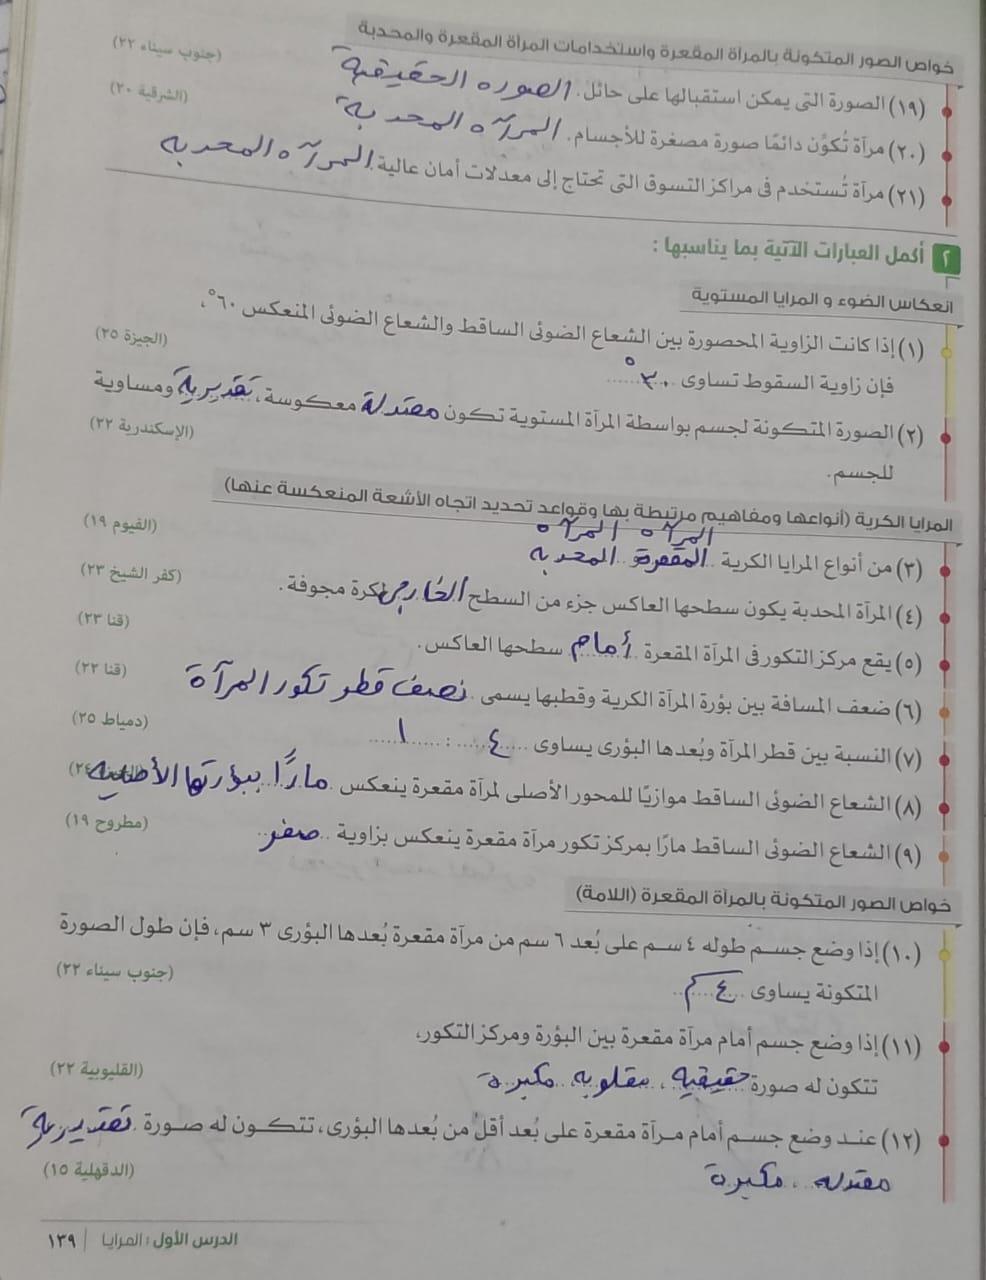 خواص الصور المتكونة بالمرآة المقعرة واستخدامات المرآة المقعرة والمحدبة
(١٩) الصورة التى يمكن استقبالها على حائل. الصوره الحقيقية (جنوب سيناء ٢٢)
(٢٠) مرآة تُكوِّن دائمًا صورة مصغرة للأجسام. المرآه المحدبة (الشرقية ٢٠)
(٢١) مرآة تُستخدم فى مراكز التسوق التى تحتاج إلى معدلات أمان عالية. المرآه المحدبه
٢ أكمل العبارات الآتية بما يناسبها :
انعكاس الضوء و المرايا المستوية
(١) إذا كانت الزاوية المحصورة بين الشعاع الضوئى الساقط والشعاع الضوئى المنعكس ٦٠°،
فإن زاوية السقوط تساوى ٣٠° (الجيزة ٢٥)
(٢) الصورة المتكونة لجسم بواسطة المرآة المستوية تكون معتدلة معكوسة، تقديرية ومساوية
للجسم. (الإسكندرية ٢٢)
المرايا الكرية (أنواعها ومفاهيم مرتبطة بها وقواعد تحديد اتجاه الأشعة المنعكسة عنها)
المرآه المرآه
(٣) من أنواع المرايا الكرية المقعرة المحدبه (الفيوم ١٩)
(٤) المرآة المحدبة يكون سطحها العاكس جزء من السطح الخارجى لكرة مجوفة. (كفر الشيخ ٢٣)
(٥) يقع مركز التكور فى المرآة المقعرة أمام سطحها العاكس. (قنا ٢٣)
(٦) ضعف المسافة بين بؤرة المرآة الكرية وقطبها يسمى نصف قطر تكور المرآة (قنا ٢٢)
(٧) النسبة بين قطر المرآة وبُعدها البؤرى يساوى ٤ : ١ (دمياط ٢٥)
(٨) الشعاع الضوئى الساقط موازيًا للمحور الأصلى لمرآة مقعرة ينعكس مارًا ببؤرتها الأصليه
(٩) الشعاع الضوئى الساقط مارًا بمركز تكور مرآة مقعرة ينعكس بزاوية صفر (مطروح ١٩)
خواص الصور المتكونة بالمرآة المقعرة (اللامة)
(١٠) إذا وضع جسم طوله ٤ سم على بُعد ٦ سم من مرآة مقعرة بُعدها البؤرى ٣ سم، فإن طول الصورة
المتكونة يساوى ٤ سم (جنوب سيناء ٢٢)
(١١) إذا وضع جسم أمام مرآة مقعرة بين البؤرة ومركز التكور،
تتكون له صورة حقيقيه، مقلوبه، مكبرة (القليوبية ٢٢)
(١٢) عند وضع جسم أمام مرآة مقعرة على بُعد أقل من بُعدها البؤرى، تتكون له صورة تقديرية
معتدله، مكبرة (الدقهلية ١٥)
الدرس الأول : المرايا ١٣٩